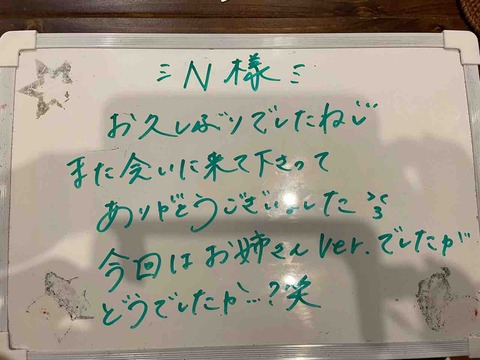 ミN様ミ
お久しぶりでしたねじ
また会いに来て下さって
ありがとうございました
今回はお姉さんver.でしたが
どうでしたか…?笑